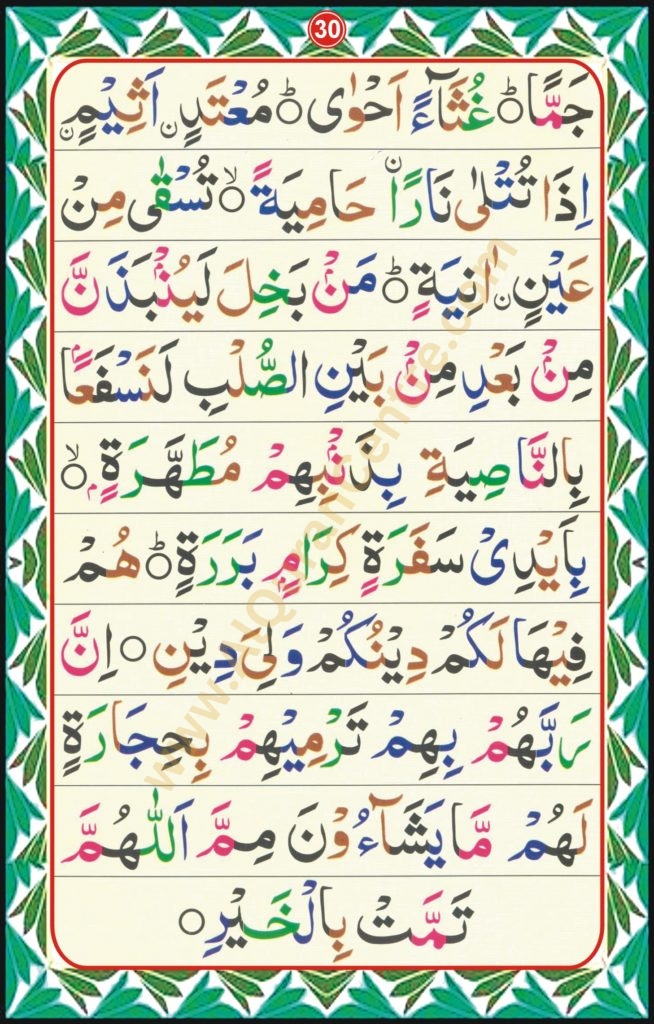 30
جَمًّا ؕ غُثَآءً اَحْوٰى ؕ مُعْتَدٍ اَثِيْمٍ
اِذَا تُتْلٰى نَارًا حَامِيَةً ۙ تُسْقٰى مِنْ
عَيْنٍ اٰنِيَةٍ ؕ مَنْۢ بَخِلَ لَيُنْۢبَذَنَّ
مِنْۢ بَعْدِ مِنْۢ بَيْنِ الصُّلْبِ لَنَسْفَعًاۢ
بِالنَّاصِيَةِ بِذَنْۢبِهِمْ مُطَهَّرَةٍۭ ۙ
بِاَيْدِىْ سَفَرَةٍ كِرَامٍۭ بَرَرَةٍ ؕ هُمْ
فِيْهَا لَكُمْ دِيْنُكُمْ وَلِىَ دِيْنِ ۝ اِنَّ
رَبَّهُمْ بِهِمْ تَرْمِيْهِمْ بِحِجَارَةٍ
لَهُمْ مَّا يَشَآءُوْنَ مِمَّ اَللّٰهُمَّ
تَمَّتْ بِالْخَيْرِ ۝
www.AlQuranCentre.com